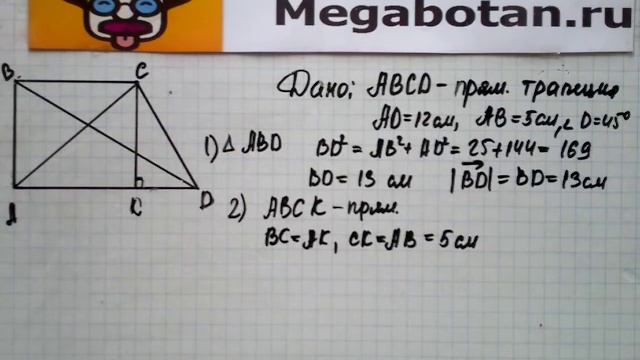 Megabotan.ru
B C
A K D
Дано: ABCD - прям. трапеция
AD=12см, AB=5см, ∠D=45°
1) Δ ABD BD²=AB²+AD²=25+144=169
BD=13 см |BD|=BD=13см
2) ABCK - прям.
BC=AK, CK=AB=5см